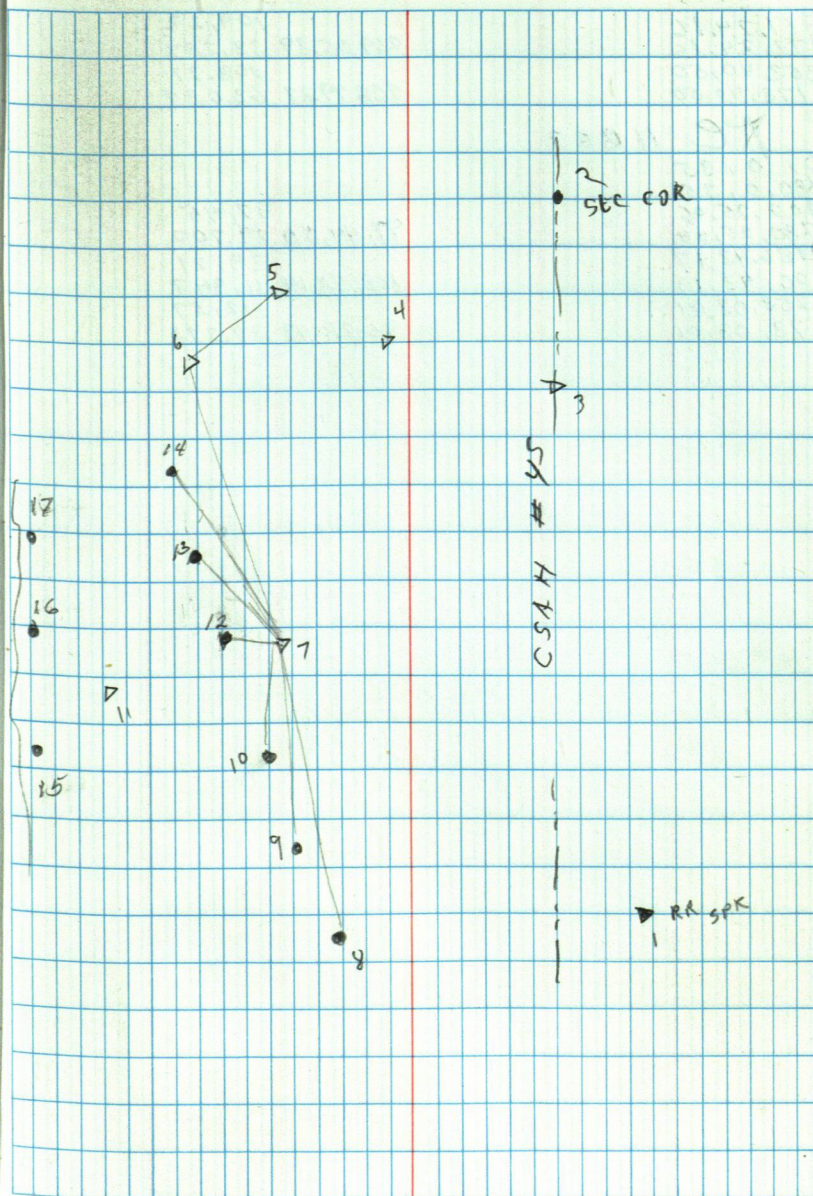 2
SEC COR
5
4
6
3
14
CSAH # 45
17
13
16
12
7
11
10
15
9
RR SPK
1
8